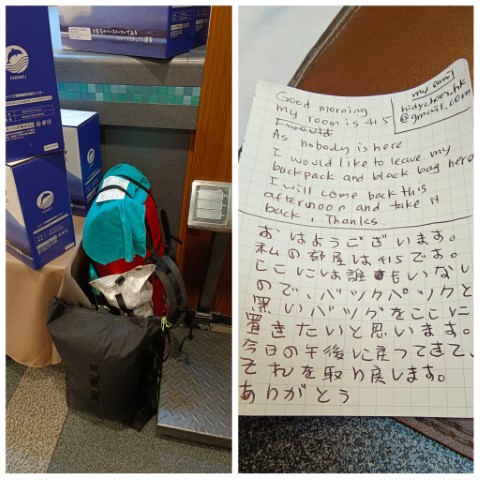 Good morning
my room is 415
I would
As nobody is here
I would like to leave my
backpack and black bag here
I will come back this
afternoon and take it
back, Thanks.
my email
@gmail.com
おはようございます。
私の部屋は415です。
ここには誰もいない
ので、バックパックと
黒いバッグをここに
置きたいと思います。
今日の午後に戻ってきて、
それを取り戻します。
ありがとう